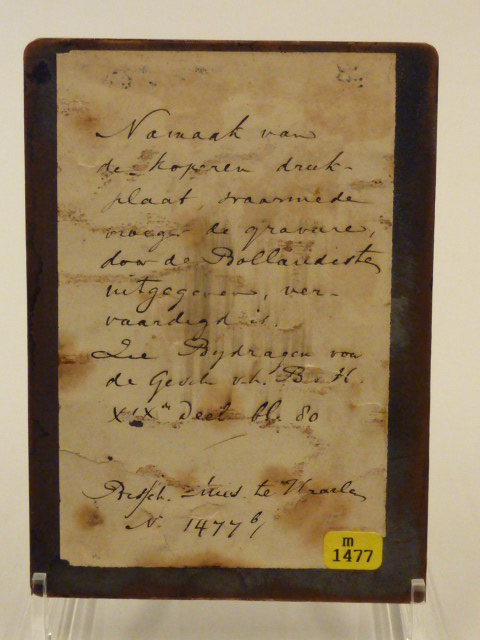 Namaak van
de koperen druk-
plaat, waarmede
vroeger de gravure,
door de Bollandisten
uitgegeven, ver-
vaardigd is.
Zie Bydragen voor
de Gesch. v.h. B. v. H.
XIXe Deel bl. 80
Bissch. Mus. te Haarlem
N. 1477 b/
m
1477